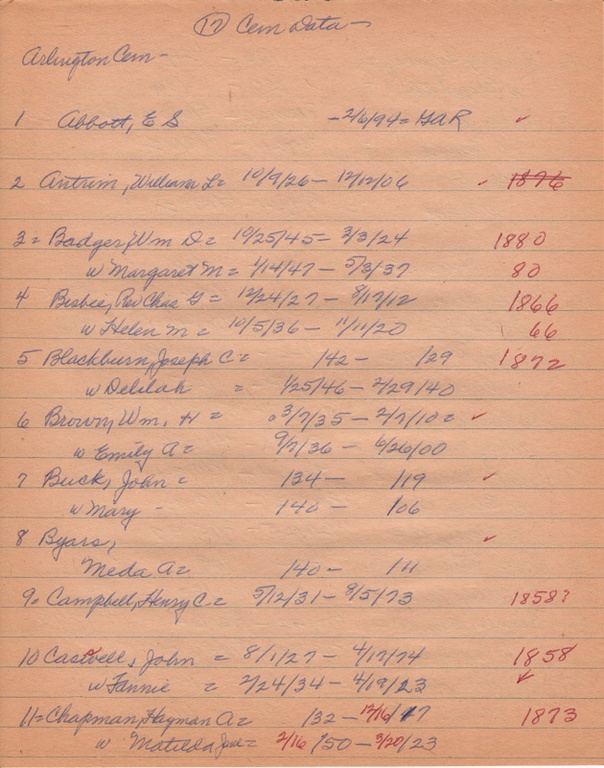 (17) Cem Data -
Arlington Cem -
1 Abbott, E S - 2/6/94 = GAR ✓
2 Antrim, William L = 10/9/26 - 12/12/06 ✓ 1876
3 = Badger, Wm D = 10/25/45 - 3/3/24 1880
w Margaret M = 1/14/47 - 5/3/37 80
4 Bisbee, Rev Chas G = 12/24/27 - 8/17/12 1866
w Helen M = 10/5/36 - 11/11/20 66
5 Blackburn, Joseph C = /42 - /29 1872
w Delilah = 1/25/46 - 2/29/40
6 Brown, Wm, H = 3/7/35 - 2/7/10 = ✓
w Emily A = 9/7/36 - 6/26/00
7 Buck, John = /34 - /19 ✓
w Mary - /40 - /06
8 Byars, ✓
Meda A = /40 - /11
9 = Campbell, Henry C = 5/12/31 - 8/5/73 1858?
10 Caswell, John = 8/1/27 - 4/17/74 1858
w Fannie = 2/24/34 - 4/19/23 ✓
11 = Chapman, Hayman A = /32 - 12/16/17 1873
w Matilda Jane = 2/16 /50 - 3/20/23